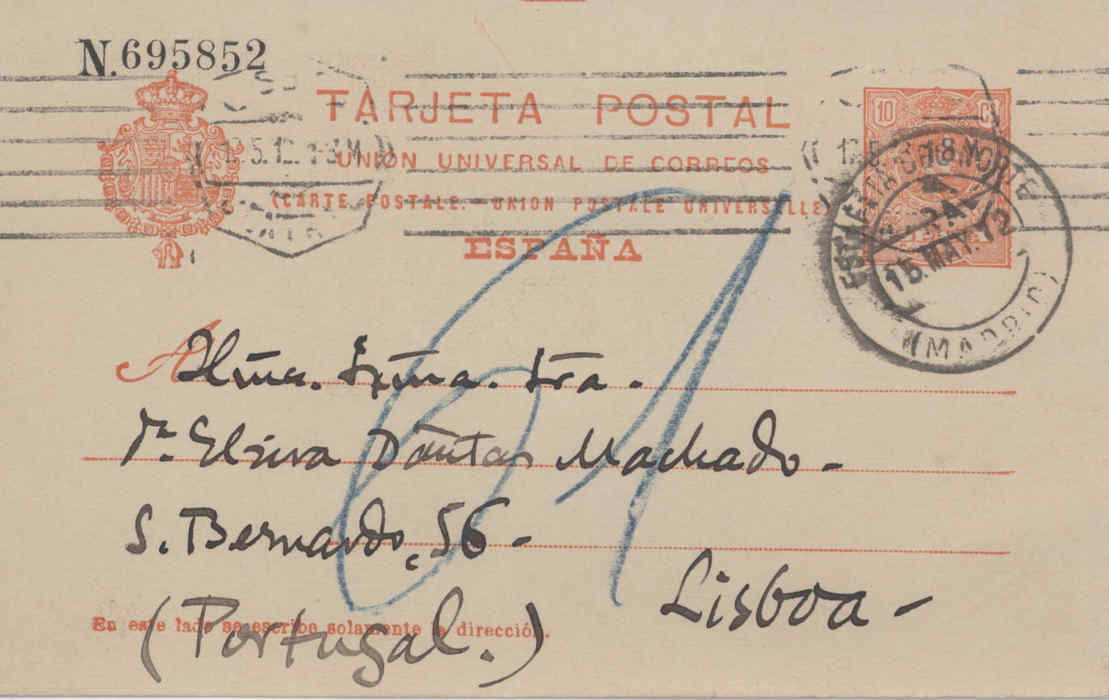 N.695852
TARJETA POSTAL
UNIÓN UNIVERSAL DE CORREOS
(CARTE POSTALE.-UNION POSTALE UNIVERSELLE)
ESPAÑA
10 C
ESTAFETA DEL NORTE
15.MAY.12
(MADRID)
A Ilma. Exma. Sra.
Dª Elzira Dantas Machado -
S. Bernardo, 56 -
Lisboa -
(Portugal.)
En este lado se escribe solamente la dirección.
61